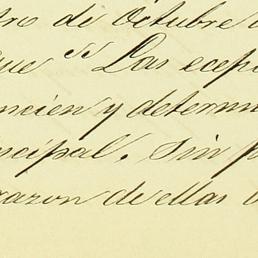 tro de Octubre
que "Las ecep
encien y determi
ncipal. Sin p
razon de ellas